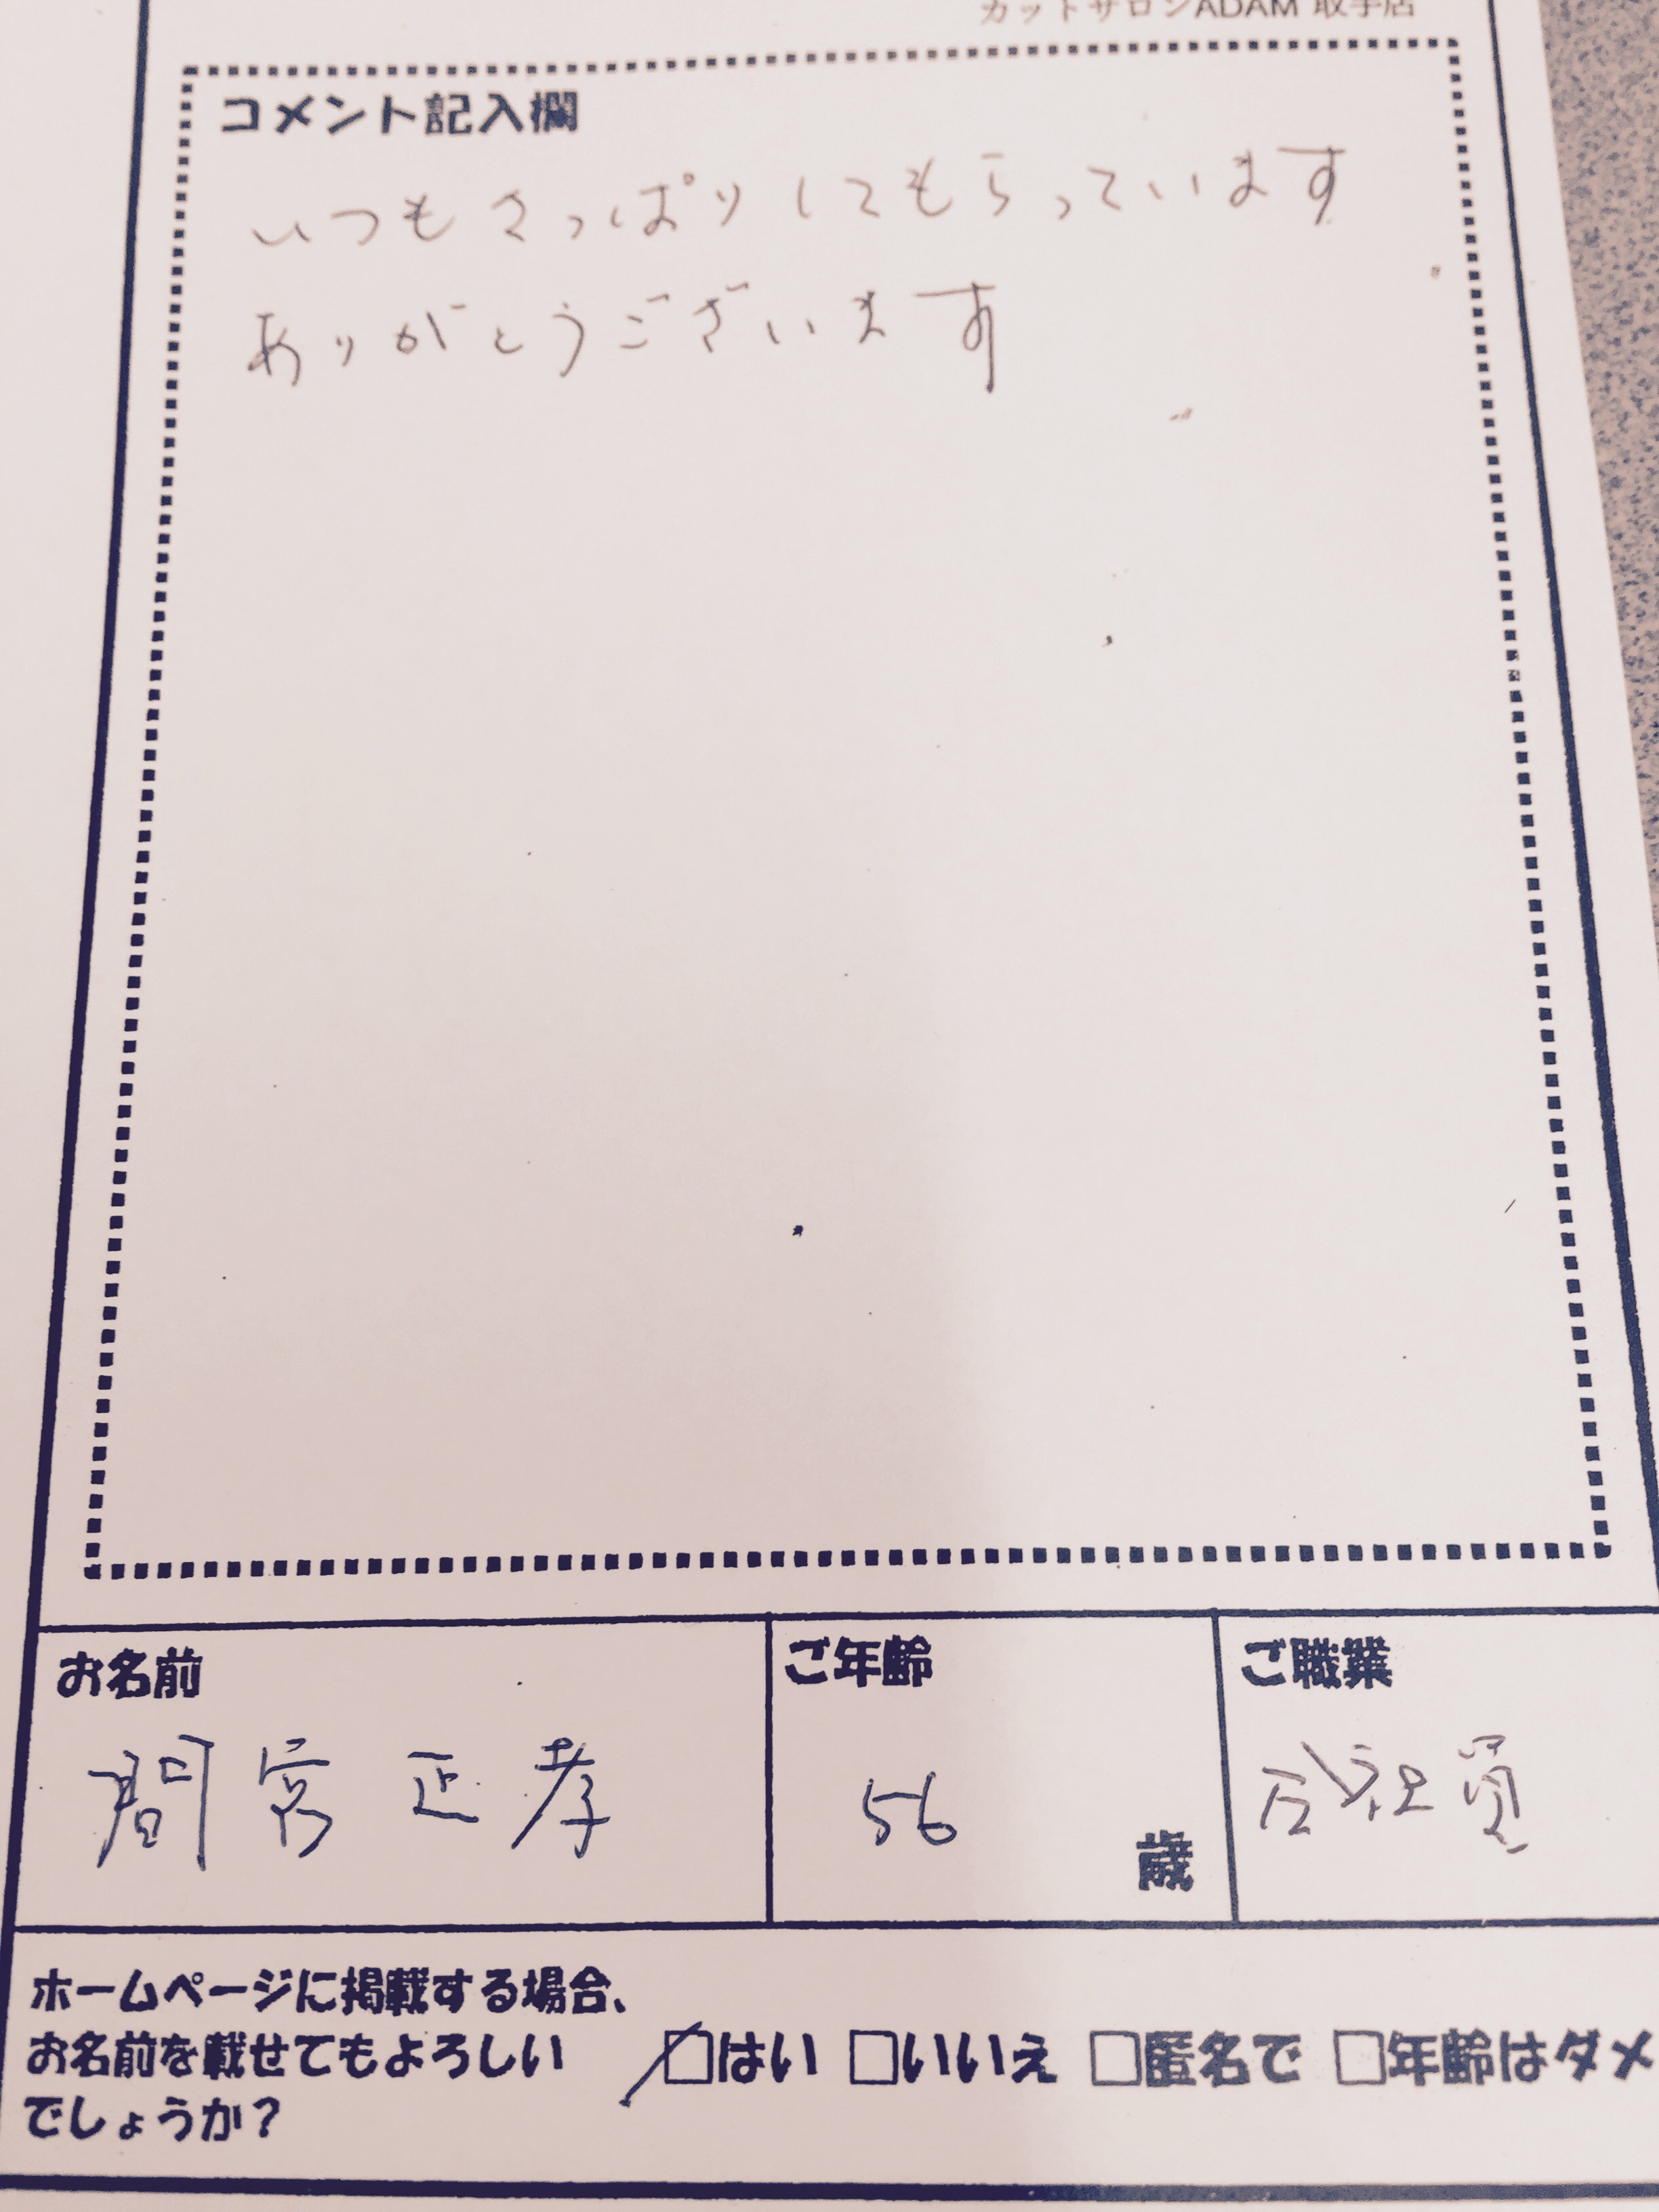 カットサロンADAM 取手店
コメント記入欄
いつもさっぱりしてもらっています
ありがとうございます
お名前
間宮正孝
ご年齢
56
歳
ご職業
会社員
ホームページに掲載する場合、
お名前を載せてもよろしい
でしょうか?
□はい □いいえ □匿名で □年齢はダメ